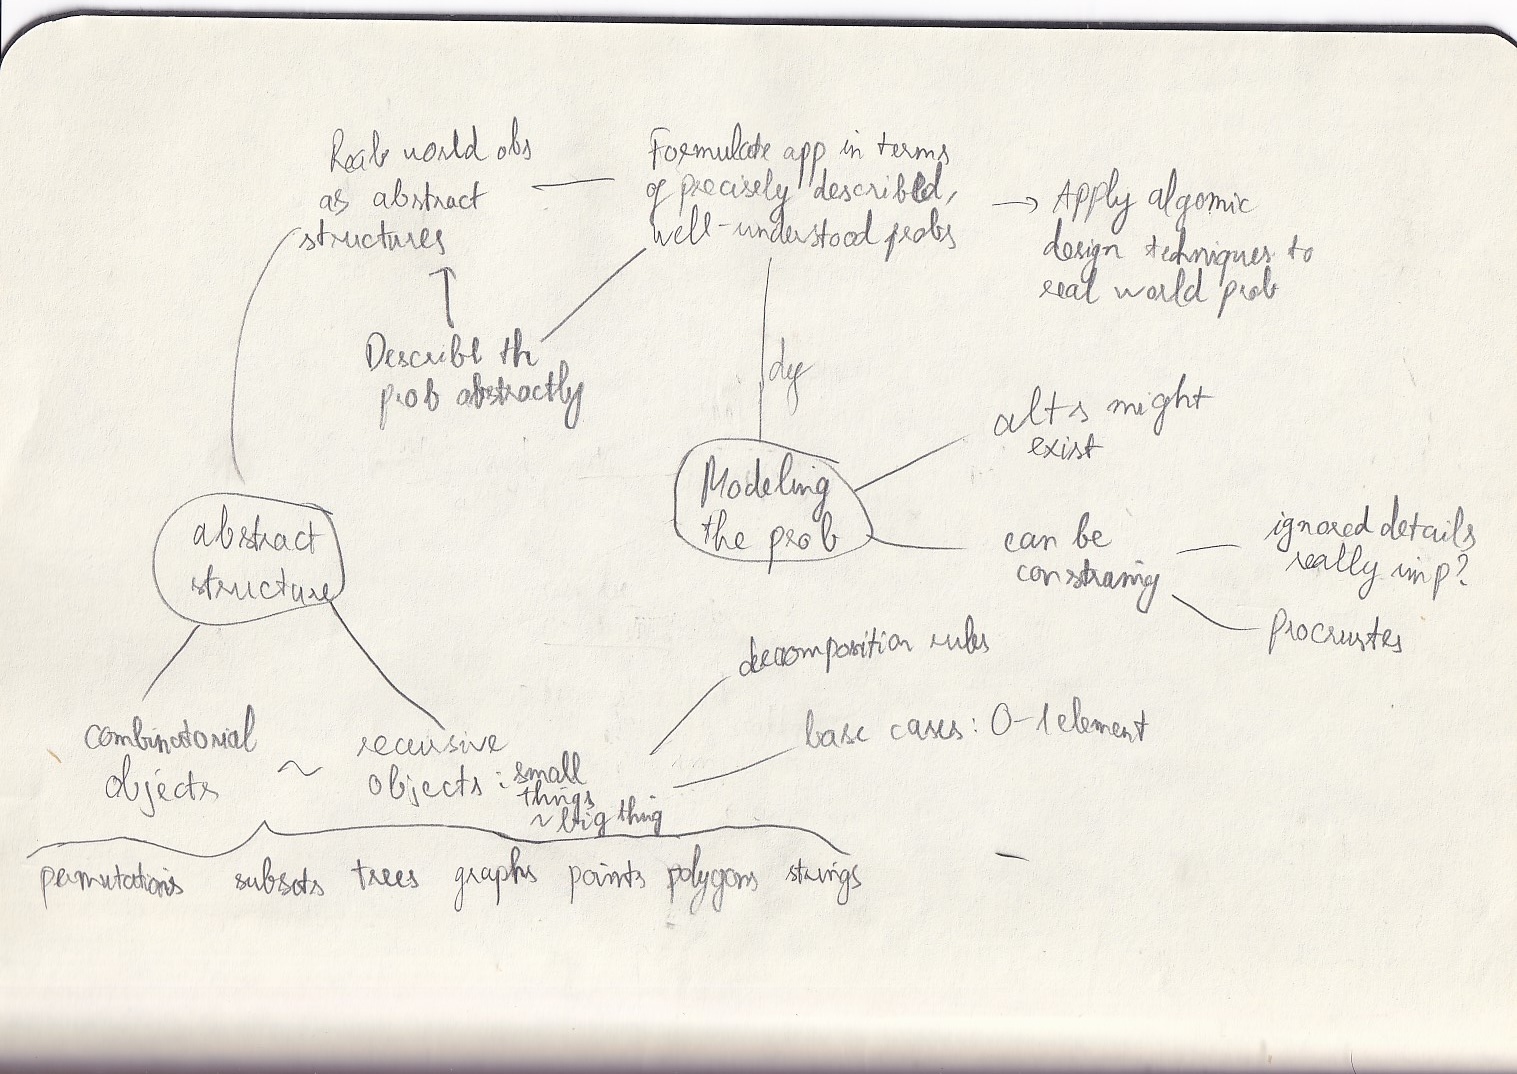 Real world obs
as abstract
structures
Formulate app in terms
of precisely described,
well-understood probs
Apply algomic
design techniques to
real world prob
Describe the
prob abstractly
def
Modeling
the prob
alts might
exist
can be
constraing
ignored details
really imp?
procrustes
abstract
structure
combinatorial
objects
~
recursive
objects : small
things
~ big thing
decomposition rules
base cases: 0-1 element
permutations subsets trees graphs points polygons strings